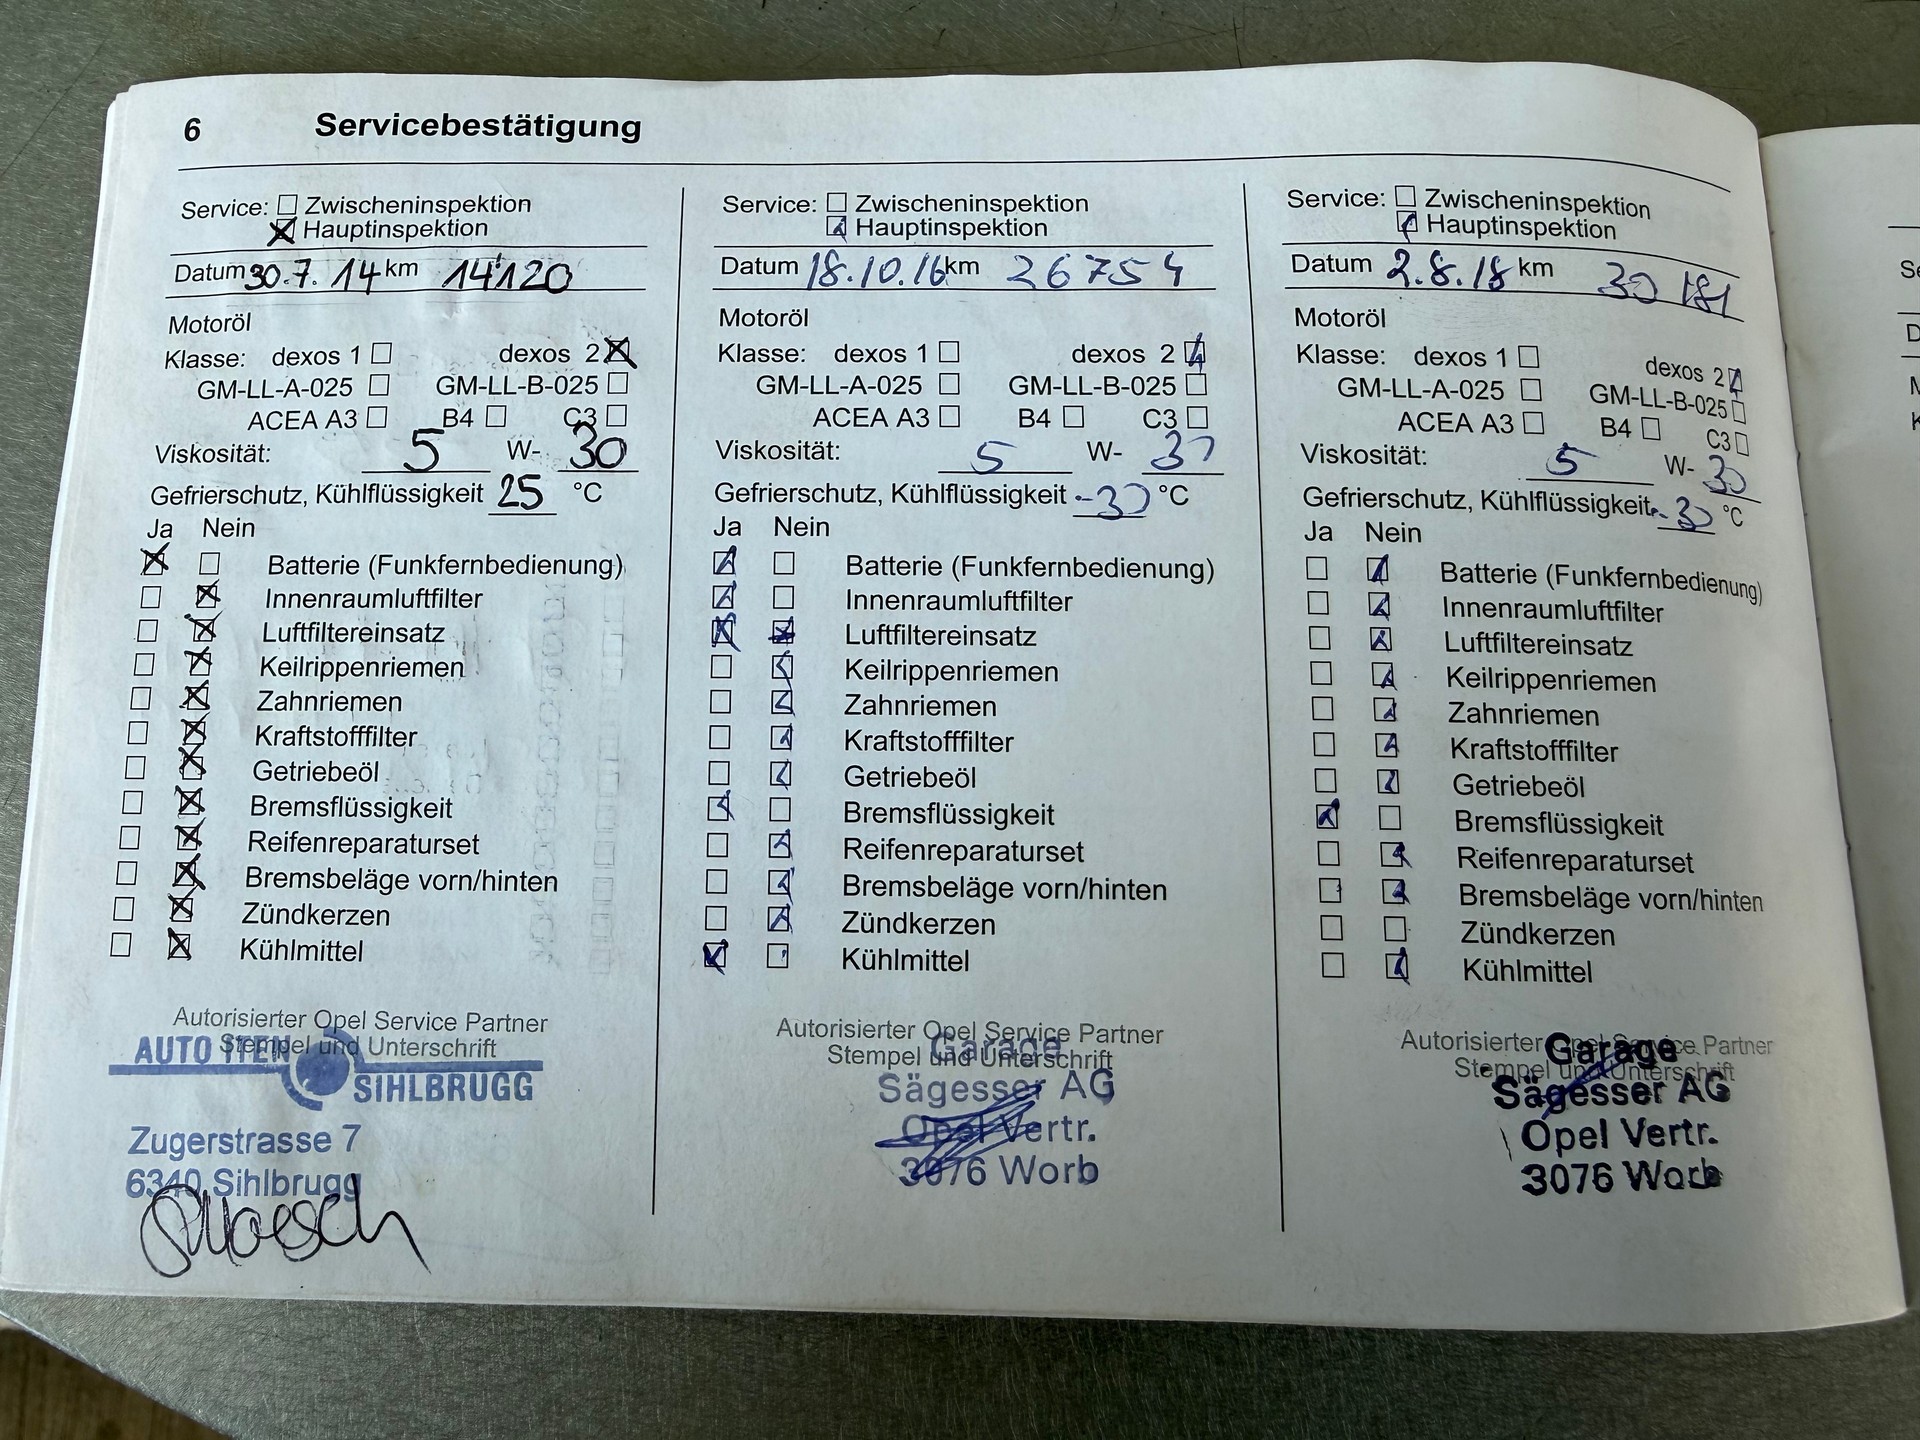 6 Servicebestätigung
Service: ☐ Zwischeninspektion
☒ Hauptinspektion
Datum 30.7.14 km 14'120
Motoröl
Klasse: dexos 1 ☐ dexos 2 ☒
GM-LL-A-025 ☐ GM-LL-B-025 ☐
ACEA A3 ☐ B4 ☐ C3 ☐
Viskosität: 5 W- 30
Gefrierschutz, Kühlflüssigkeit 25 °C
Ja Nein
☒ ☐ Batterie (Funkfernbedienung)
☐ ☒ Innenraumluftfilter
☐ ☒ Luftfiltereinsatz
☐ ☒ Keilrippenriemen
☐ ☒ Zahnriemen
☐ ☒ Kraftstofffilter
☐ ☒ Getriebeöl
☐ ☒ Bremsflüssigkeit
☐ ☒ Reifenreparaturset
☐ ☒ Bremsbeläge vorn/hinten
☐ ☒ Zündkerzen
☐ ☒ Kühlmittel
Autorisierter Opel Service Partner
Stempel und Unterschrift
AUTO ITEN
SIHLBRUGG
Zugerstrasse 7
6340 Sihlbrugg
Service: ☐ Zwischeninspektion
☒ Hauptinspektion
Datum 18.10.16 km 26754
Motoröl
Klasse: dexos 1 ☐ dexos 2 ☒
GM-LL-A-025 ☐ GM-LL-B-025 ☐
ACEA A3 ☐ B4 ☐ C3 ☐
Viskosität: 5 W- 30
Gefrierschutz, Kühlflüssigkeit -30 °C
Ja Nein
☒ ☐ Batterie (Funkfernbedienung)
☒ ☐ Innenraumluftfilter
☒ ☒ Luftfiltereinsatz
☐ ☒ Keilrippenriemen
☐ ☒ Zahnriemen
☐ ☒ Kraftstofffilter
☐ ☒ Getriebeöl
☒ ☐ Bremsflüssigkeit
☐ ☒ Reifenreparaturset
☐ ☒ Bremsbeläge vorn/hinten
☐ ☒ Zündkerzen
☒ ☐ Kühlmittel
Autorisierter Opel Service Partner
Stempel und Unterschrift
Garage
Sägesser AG
Opel Vertr.
3076 Worb
Service: ☐ Zwischeninspektion
☒ Hauptinspektion
Datum 2.8.18 km 30 181
Motoröl
Klasse: dexos 1 ☐ dexos 2 ☒
GM-LL-A-025 ☐ GM-LL-B-025 ☐
ACEA A3 ☐ B4 ☐ C3 ☐
Viskosität: 5 W- 30
Gefrierschutz, Kühlflüssigkeit -30 °C
Ja Nein
☐ ☒ Batterie (Funkfernbedienung)
☐ ☒ Innenraumluftfilter
☐ ☒ Luftfiltereinsatz
☐ ☒ Keilrippenriemen
☐ ☒ Zahnriemen
☐ ☒ Kraftstofffilter
☐ ☒ Getriebeöl
☒ ☐ Bremsflüssigkeit
☐ ☒ Reifenreparaturset
☐ ☒ Bremsbeläge vorn/hinten
☐ ☐ Zündkerzen
☐ ☒ Kühlmittel
Autorisierter Opel Service Partner
Stempel und Unterschrift
Garage
Sägesser AG
Opel Vertr.
3076 Worb